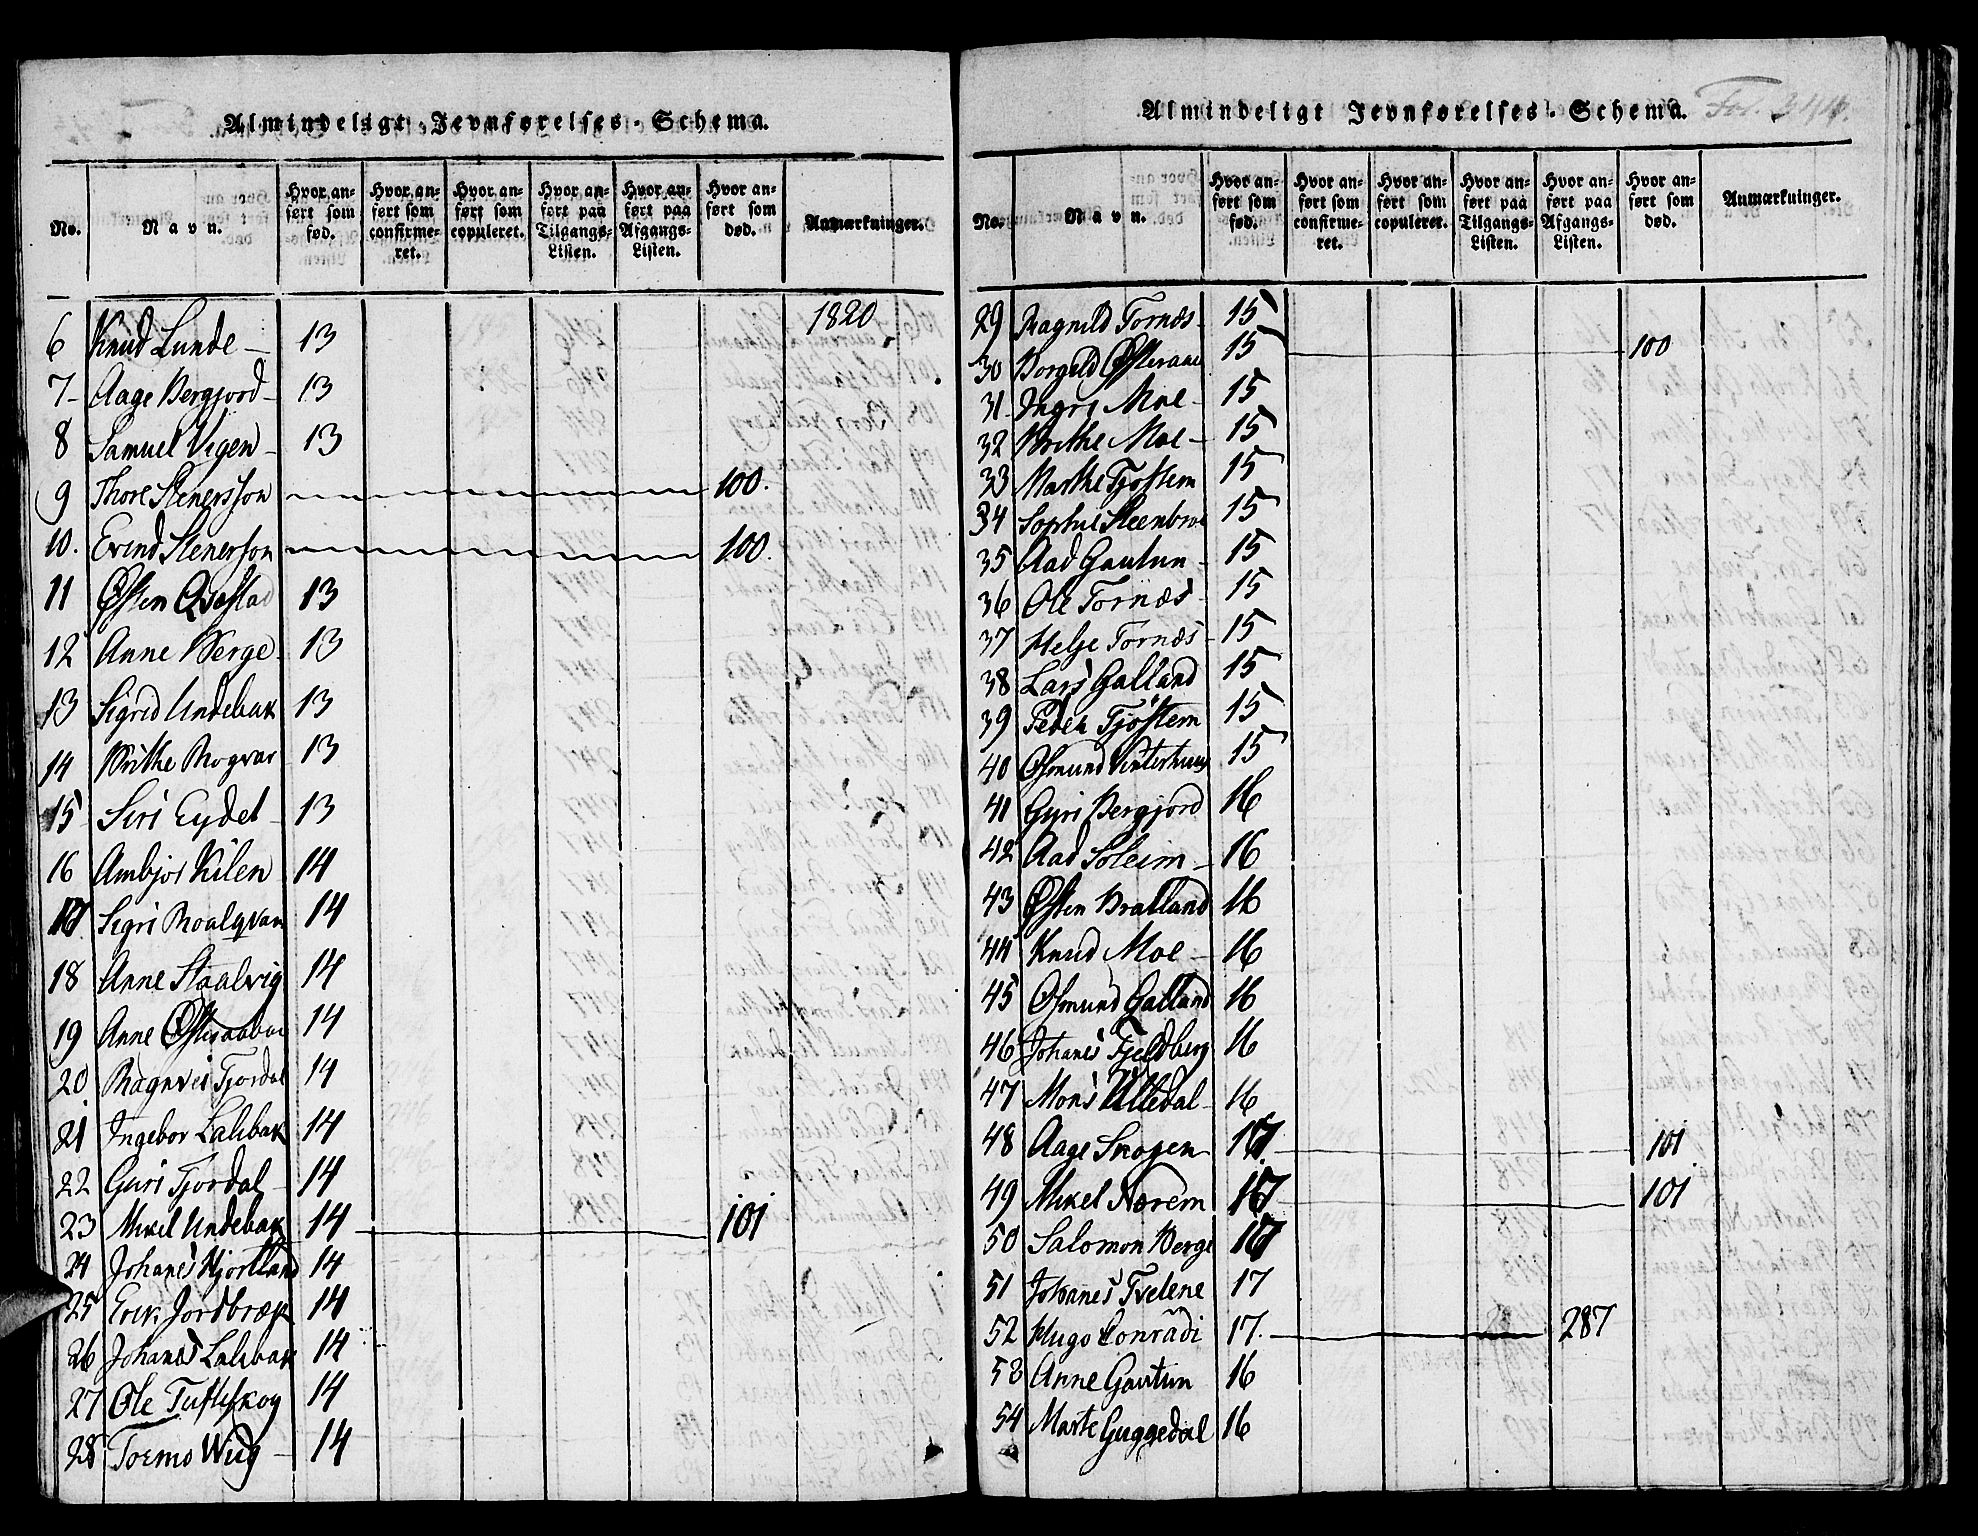 Almindeligt Jevnførelses-Schema.
No.
Navn.
Hvor anført som fød.
Hvor anført som confirmeret.
Hvor anført som copuleret.
Hvor anført paa Tilgangs-Listen.
Hvor anført paa Afgangs-Listen.
Hvor anført som død.
Anmærkninger.
1820
6 Knud Lunde - 13
7- Aage Bergjord - 13
8 Samuel Vigen - 13
9 Thore Stenersson 100.
10. Evind Stenerson 100.
11 Østen Qvastad 13
12 Anne Berge 13
13 Sigrid Undebak 13
14 Brithe Rogvar 13
15 Siri Eydet 13
16 Ambjor Kilen 14
17 Sigri Roalqvam 14
18 Anne Staalvig 14
19 Anne Østeraaboe 14
20. Magnies Tjordal 14
21 Ingebor Lalibak 14
22 Guri Tjordal 14
23 Mikel Undebak 14 101
24 Johanes Hjortland 14
25 Erik Jordbræk 14
26 Johanes Lalibak 14
27 Ole Tufteskog 14
28 Tormo Wiig - 14
Almindeligt Jevnførelses-Schema.
Fol. 344.
No.
Navn.
Hvor anført som fød.
Hvor anført som confirmeret.
Hvor anført som copuleret.
Hvor anført paa Tilgangs-Listen.
Hvor anført paa Afgangs-Listen.
Hvor anført som død.
Anmærkninger.
29 Ragnild Tornæs 15
30 Borgild Østeraae 15 100
31. Ingri Moe - 15
32 Brithe Moe - 15
33 Marthe Tjøstem 15
34 Sophie Steenbroe 15
35 Aad Gautun - 15
36 Ole Tornæs 15
37 Helje Tornæs 15
38 Lars Galland 15
39 Peder Tjøstem 15
40 Osmund Vinterhuus 15
41 Gyri Bergjord 16
42 Aad Soleim - 16
43 Østen Bratland 16
44 Knud Moe - 16
45 Osmund Galland 16
46 Johanes Fjeldberg 16
47 Mons Ulledal 16
48 Aage Snogen 17. 101
49 Mikel Nærem 17 101
50 Salomon Berge 17
51 Johanes Tvelene 17
52 Hugo Conradi 17. 287
53 Anne Gautun 16
54 Marte Guggedal 16